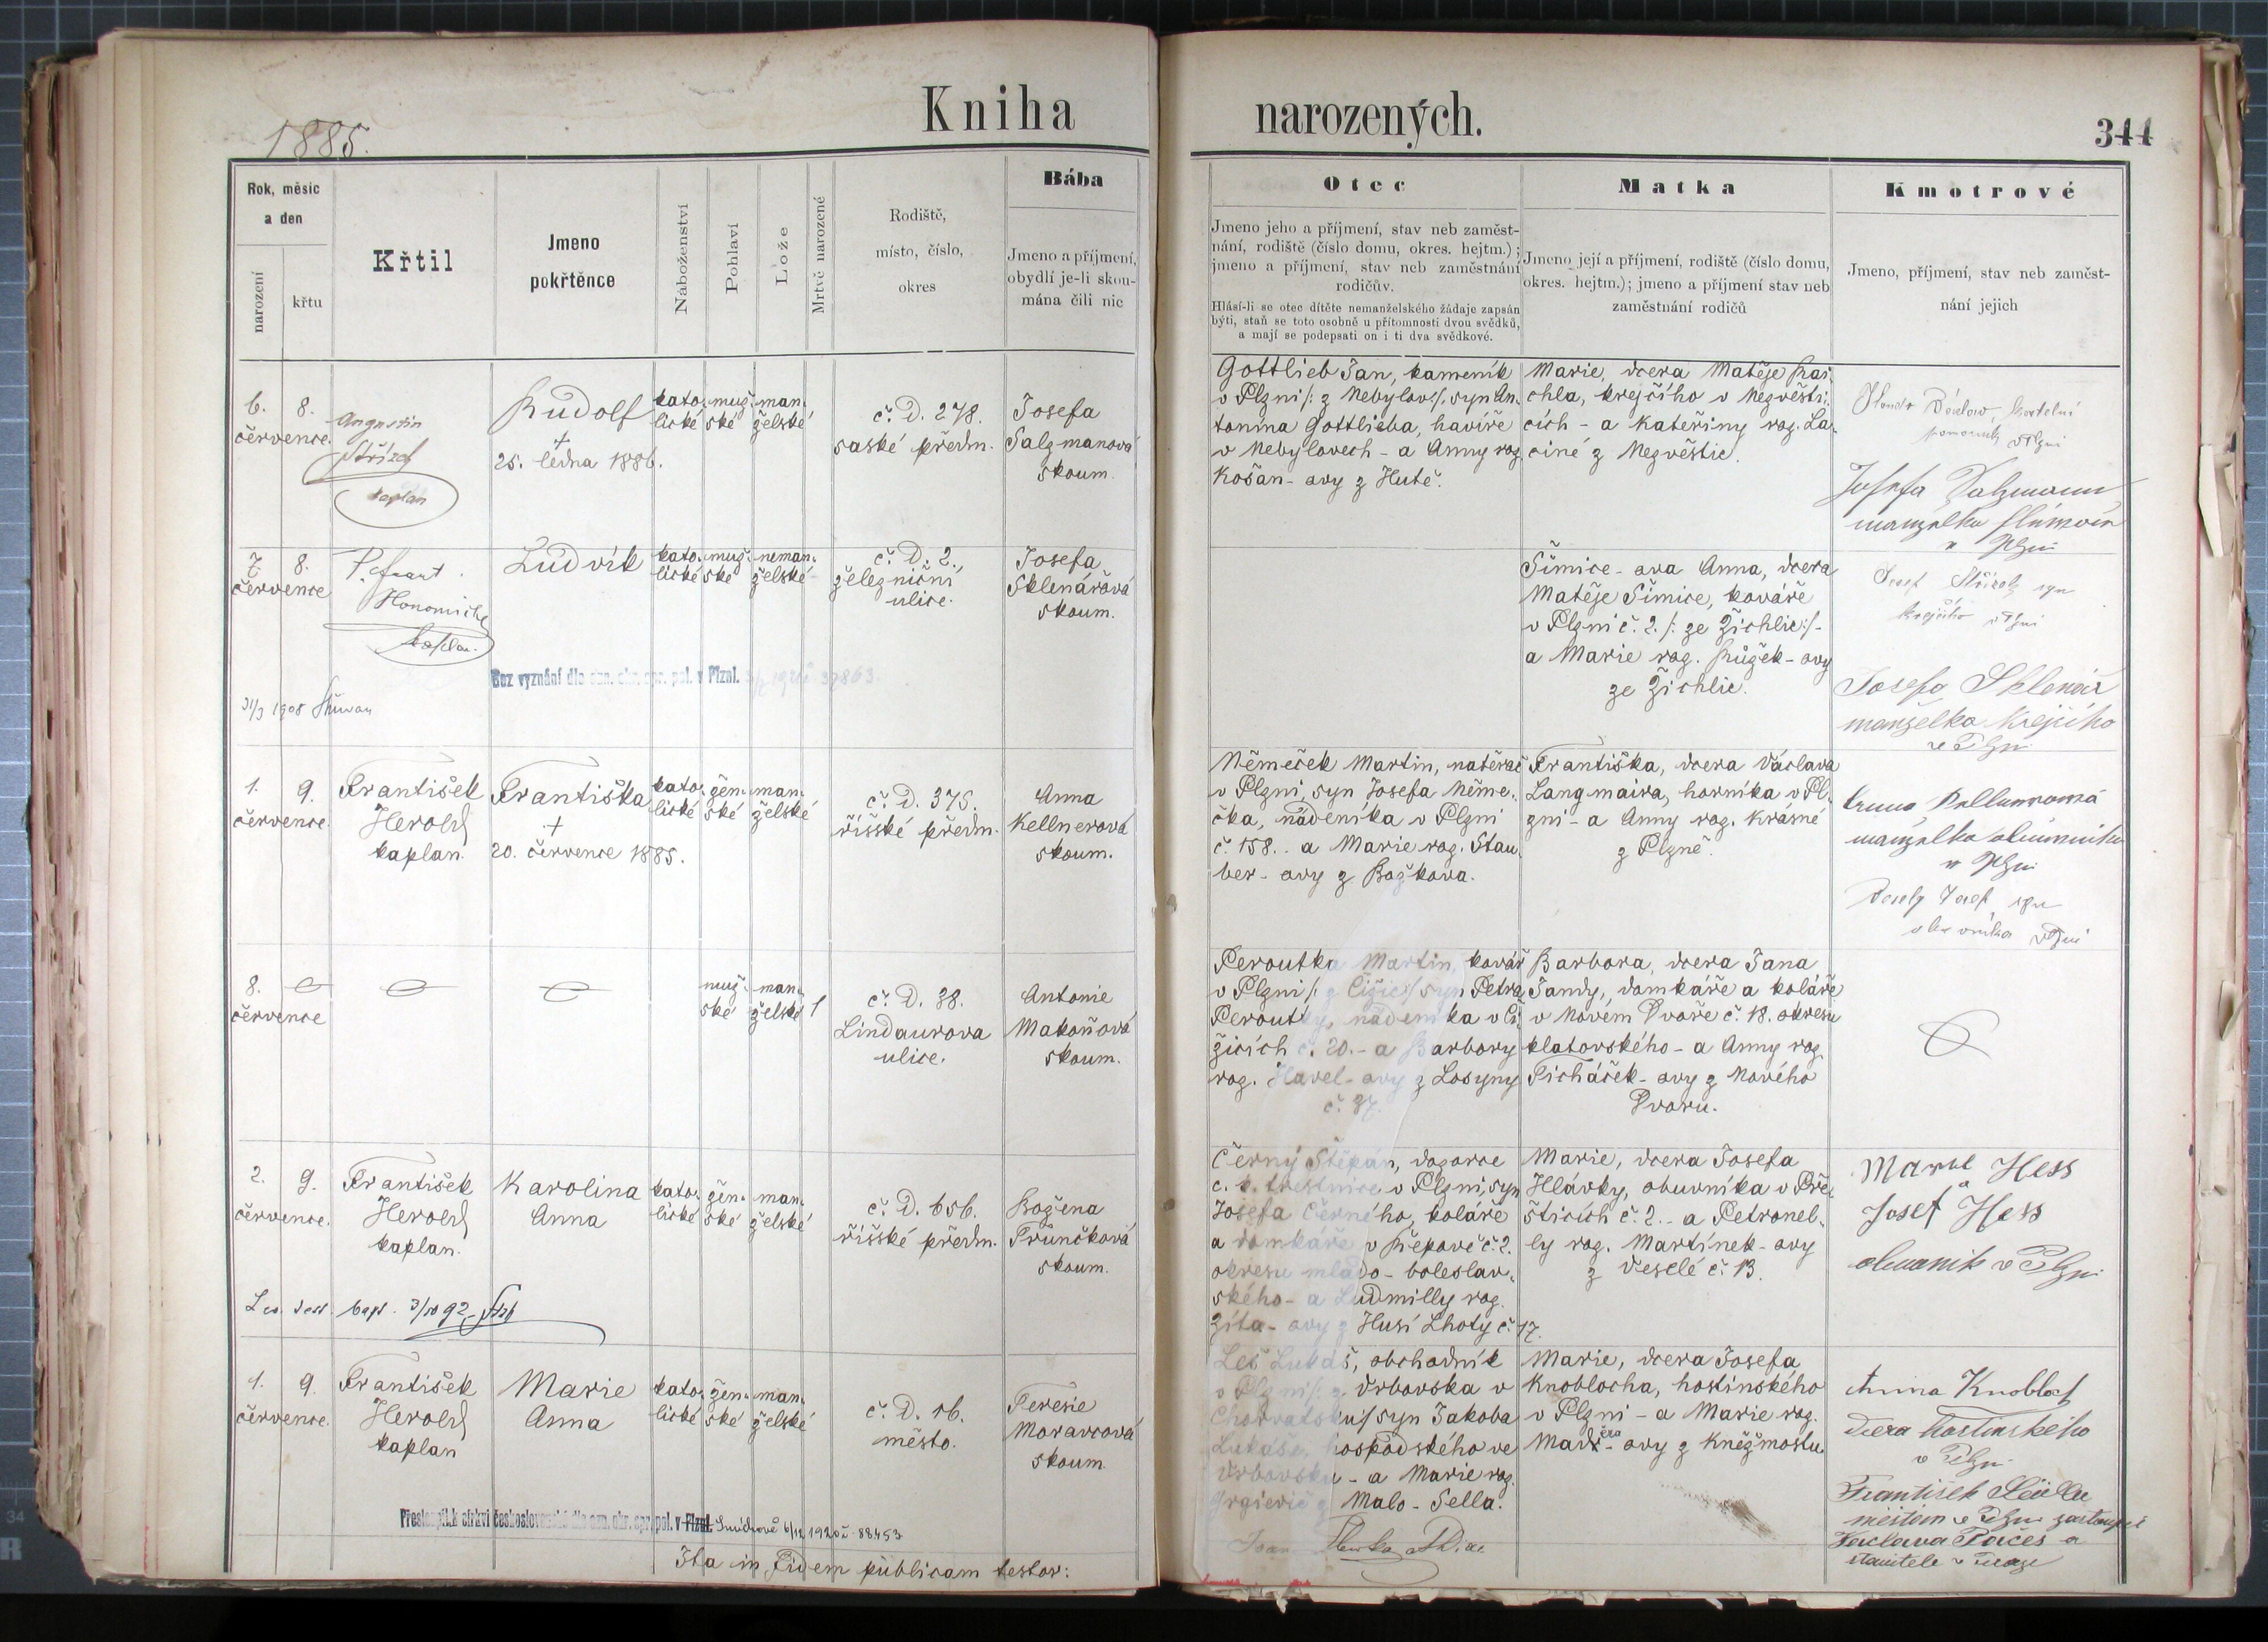 1885.
Kniha narozených.
344
Rok, měsíc
a den
narození
křtu
Křtil
Jmeno
pokřtěnce
Náboženství
Pohlaví
Lože
Mrtvě narozené
Rodiště,
místo, číslo,
okres
Bába
Jmeno a příjmení,
obydlí je-li skou-
mána čili nic
Otec
Jmeno jeho a příjmení, stav neb zaměst-
nání, rodiště (číslo domu, okres. hejtm.);
jmeno a příjmení, stav neb zaměstnání
rodičův.
Hlásí-li se otec dítěte nemanželského žádaje zapsán
býti, staň se toto osobně u přítomnosti dvou svědků,
a mají se podepsati on i ti dva svědkové.
Matka
Jmeno její a příjmení, rodiště (číslo domu,
okres. hejtm.); jmeno a příjmení stav neb
zaměstnání rodičů
Kmotrové
Jmeno, příjmení, stav neb zaměst-
nání jejich
6. 8.
července.
Augustin
Střízek
kaplan
Rudolf
+
25. ledna 1886.
kato-
lické
muž-
ské
man-
želské
č. D. 278.
saské předm.
Josefa
Salzmanová
skoum.
Gottlieb Jan, kameník
v Plzni /: z Nebylov :/, syn An-
tonína Gottlieba, havíře
v Nebylovech - a Anny roz.
Košan- ovy z Hutě.
Marie, dcera Matěje Rai-
chla, krejčího v Nezvěsti-
cích - a Kateřiny roz. La-
ciné z Nezvěstic.
v Plzni
Josefa Salzmann
manželka
v Plzni
7. 8.
července
P. Frant.
Honomichl
kaplan.
Ludvík
kato-
lické
muž-
ské
neman-
želské
č. D. 2.,
železniční
ulice.
Josefa
Sklenářová
skoum.
Šimice- ova Anna, dcera
Matěje Šimice, kováře
v Plzni č. 2. /: ze Žichlic :/-
a Marie roz. Růžek- ovy
ze Žichlic.
Josef syn
krejčího v Plzni
Josefa Sklenář
manželka krejčího
v Plzni
Bez vyznání dle ozn. okr. spr. pol. v Plzni.
31/3 1908
1. 9.
července.
František
Herold
kaplan.
Františka
+
20. července 1885.
kato-
lické
žen-
ské
man-
želské
č. D. 375.
říšské předm.
Anna
Kellnerová
skoum.
Němeček Martin, natěrač
v Plzni, syn Josefa Něme-
čka, nádeníka v Plzni
č. 158. - a Marie roz. Stau-
ber- ovy z Božkova.
Františka, dcera Václava
Langmaira, horníka v Pl-
zni - a Anny roz. Krásné
z Plzně.
manželka
v Plzni
Veselý Josef, syn
v Plzni
8.
července
muž-
ské
man-
želské
1
č. D. 38.
Lindaurova
ulice.
Antonie
Makoňová
skoum.
Peroutka Martin, kovář
v Plzni /: z Čižic :/ syn Petra
Peroutky, nádeníka v Či-
žicích č. 20. - a Barbory
roz. Havel- ovy z Losyny
č. 37.
Barbora, dcera Jana
Jandy, domkáře a koláře
v Novém Dvoře č. 18. okresu
klatovského - a Anny roz.
Ticháček- ovy z Nového
Dvoru.
2. 9.
července.
František
Herold
kaplan.
Karolina
Anna
kato-
lické
žen-
ské
man-
želské
č. D. 656.
říšské předm.
Božena
Průnčková
skoum.
Černý Štěpán, dozorce
c. k. trestnice v Plzni, syn
Josefa Černého, koláře
a domkáře v Řepově č. 2.
okresu mlado- boleslav-
ského - a Ludmilly roz.
Zíta- ovy z Husí Lhoty č. 17.
Marie, dcera Josefa
Hlávky, obuvníka v Pře-
šticích č. 2. - a Petronel-
ly roz. Martínek- ovy
z Veselé č. 13.
Hess
a
Josef Hess
obuvník v Plzni
bapt. 3/10 92
1. 9.
července.
František
Herold
kaplan
Marie
Anna
kato-
lické
žen-
ské
man-
želské
č. D. 16.
město.
Teresie
Moravcová
skoum.
Leš Lukáš, obchodník
v Plzni /: z Vrbovska v
Chorvatsku :/ syn Jakoba
Lukáše, hospodského ve
Vrbovsku - a Marie roz.
z Malo- Sella.
Marie, dcera Josefa
Knoblocha, hostinského
v Plzni - a Marie roz.
- ovy z Kněžmostu.
Anna Knobloch
dcera hostinského
v Plzni
František
měštan v Plzni zástupce
Václava Pačes a
stavitele v Praze
Přestoupil k církvi československé dle ozn. okr. spr. pol. v Plzni. Smíchově 6/12 1920 č. 88453
Ita in Fidem publicam testor: